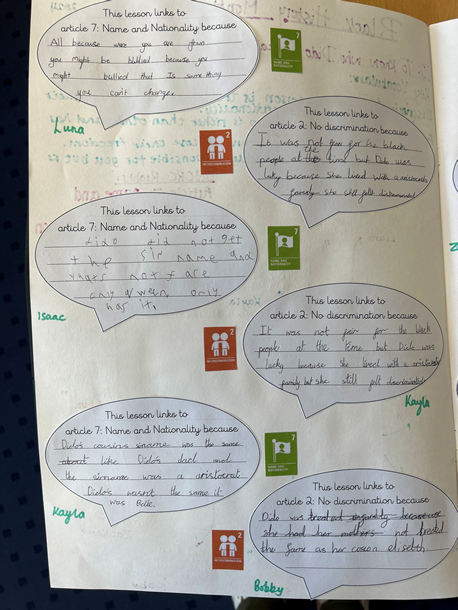 This lesson links to
article 7: Name and Nationality because
All because were you are from
you might be bullied because you
might bullied that Is something
you can't change.
Luna
7
NAME AND NATIONALITY
This lesson links to
article 2: No discrimination because
It was not fair for the black
people at the time but Dido was
lucky because she lived with a aristocratic
family she still felt discriminated
2
NO DISCRIMINATION
This lesson links to
article 7: Name and Nationality because
Dido did not get
the sir name and
thats not fare
only ween only
has it.
Isaac
7
NAME AND NATIONALITY
This lesson links to
article 2: No discrimination because
It was not fair for the black
people at the time but Dido was
lucky because she lived with a aristocratic
family but she still felt discriminated
Kayla
2
NO DISCRIMINATION
This lesson links to
article 7: Name and Nationality because
Dido's cousins sirname was the same
about like Dido's dad and
the sirname was a aristocrat
Dido's wasn't the same it
was Belle.
Kayla
7
NAME AND NATIONALITY
This lesson links to
article 2: No discrimination because
Dido was treated because
she had her mothers not treated
the same as her coson elisabth
Bobby
2
NO DISCRIMINATION